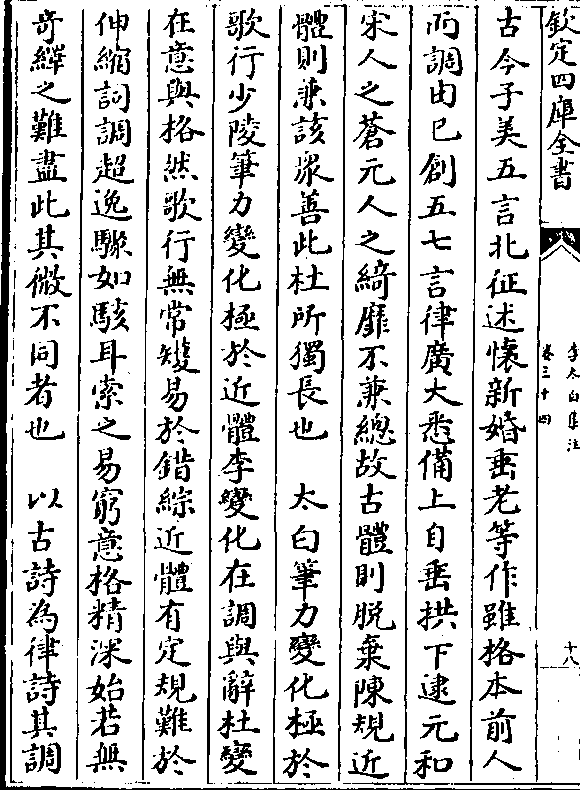 欽定四庫全書
李太白集注
卷三十四
十八
古今子美五言北征述懷新婚垂老等作雖格本前人
而調由已創五七言律廣大悉備上自垂拱下逮元和
宋人之蒼元人之綺靡不兼總故古體則脱棄陳規近
體則兼該衆善此杜所獨長也　太白筆力變化極於
歌行少陵筆力變化極於近體李變化在調與辭杜變
在意與格然歌行無常矱易於錯綜近體有定規難於
伸縮詞調超逸驟如駭耳索之易窮意格精深始若無
奇繹之難盡此其微不同者也　以古詩為律詩其調